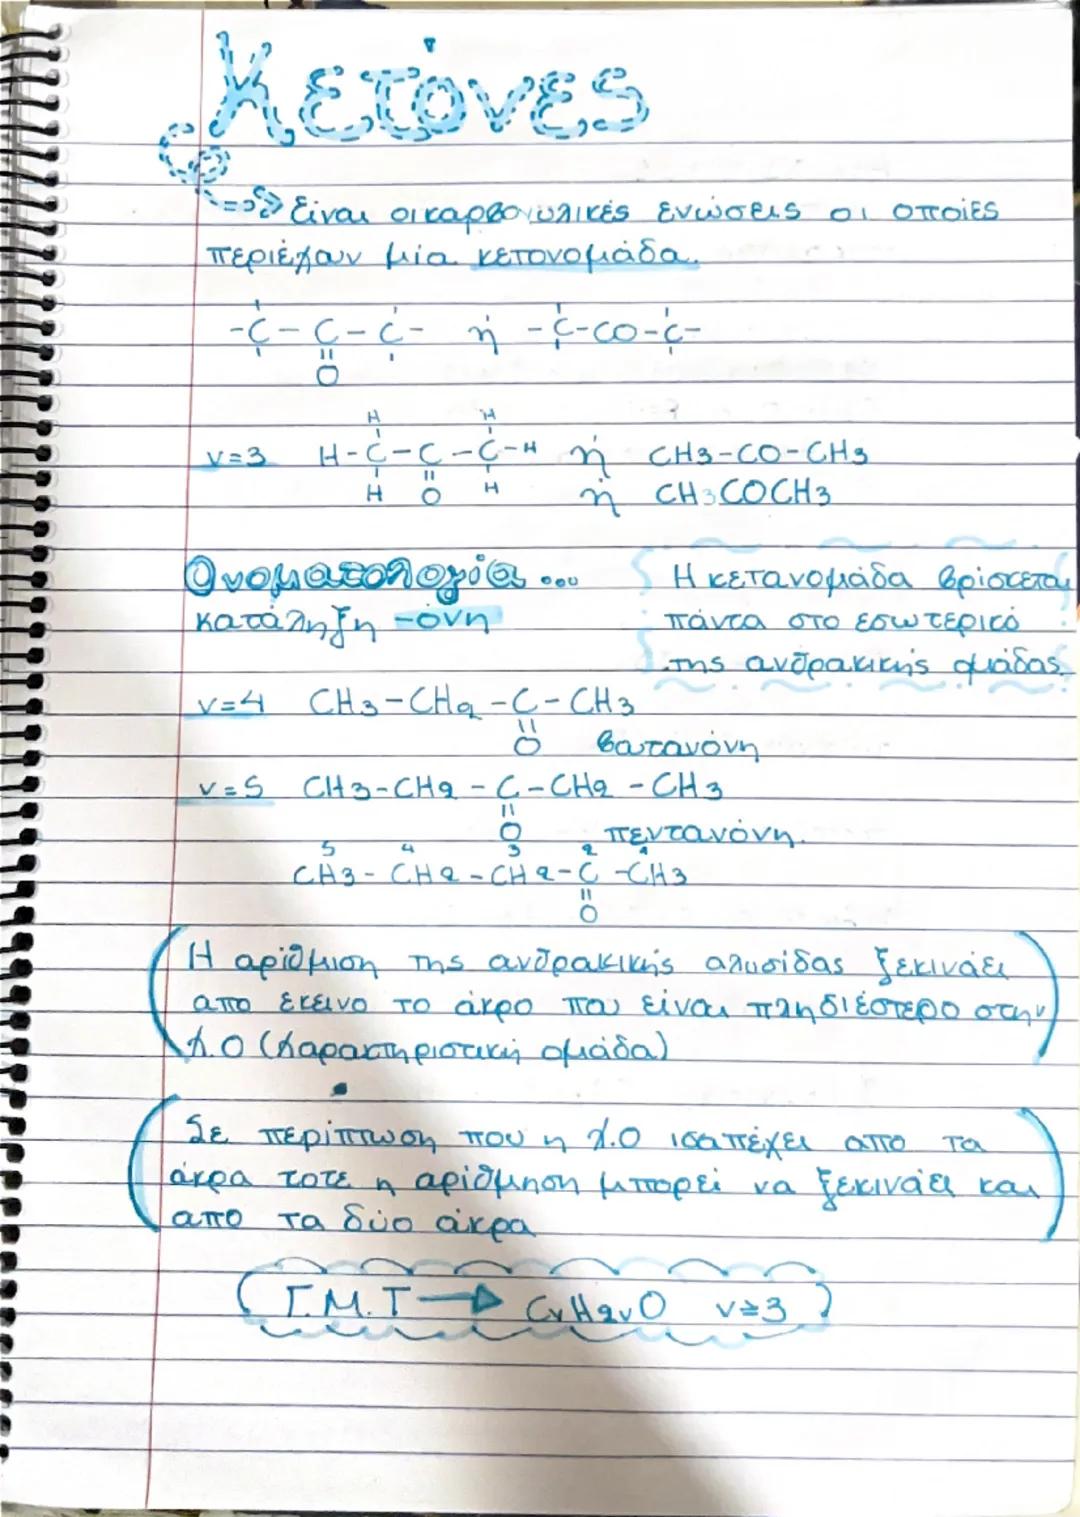 Κετόνες
Είναι οι καρβονυλικές ενώσεις οι οποίες
περιέχουν μία κετονομάδα.
-C-C-C- ή -C-CO-C-
O
H H
ν=3 H-C-C-C-H ή CH3-CO-CH3
H O H ή CH3COCH3
Ονοματολογία... Η κετονομάδα βρίσκεται
κατάληξη -όνη πάντα στο εσωτερικό
της ανθρακικής ομάδας.
ν=4 CH3-CH2-C-CH3
O βουτανόνη
ν=5 CH3-CH2-C-CH2-CH3
O πεντανόνη.
5 4 3 2 1
CH3-CH2-CH2-C-CH3
O
Η αρίθμιση της ανθρακικής αλυσίδας ξεκινάει
απο έκεινο το άκρο που είναι πληδιέστερο στην
Χ.Ο (Χαρακτηριστική ομάδα)
Σε περίπτωση που η Χ.Ο ισαπέχει απο τα
άκρα τοτε η αρίθμηση μπορεί να ξεκινάει και
απο τα δύο άκρα
Γ.Μ.Τ → CνH2νO ν≥3